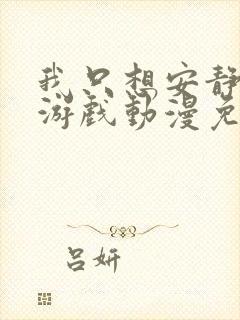 我只想安静
游戏动漫免
吕妍